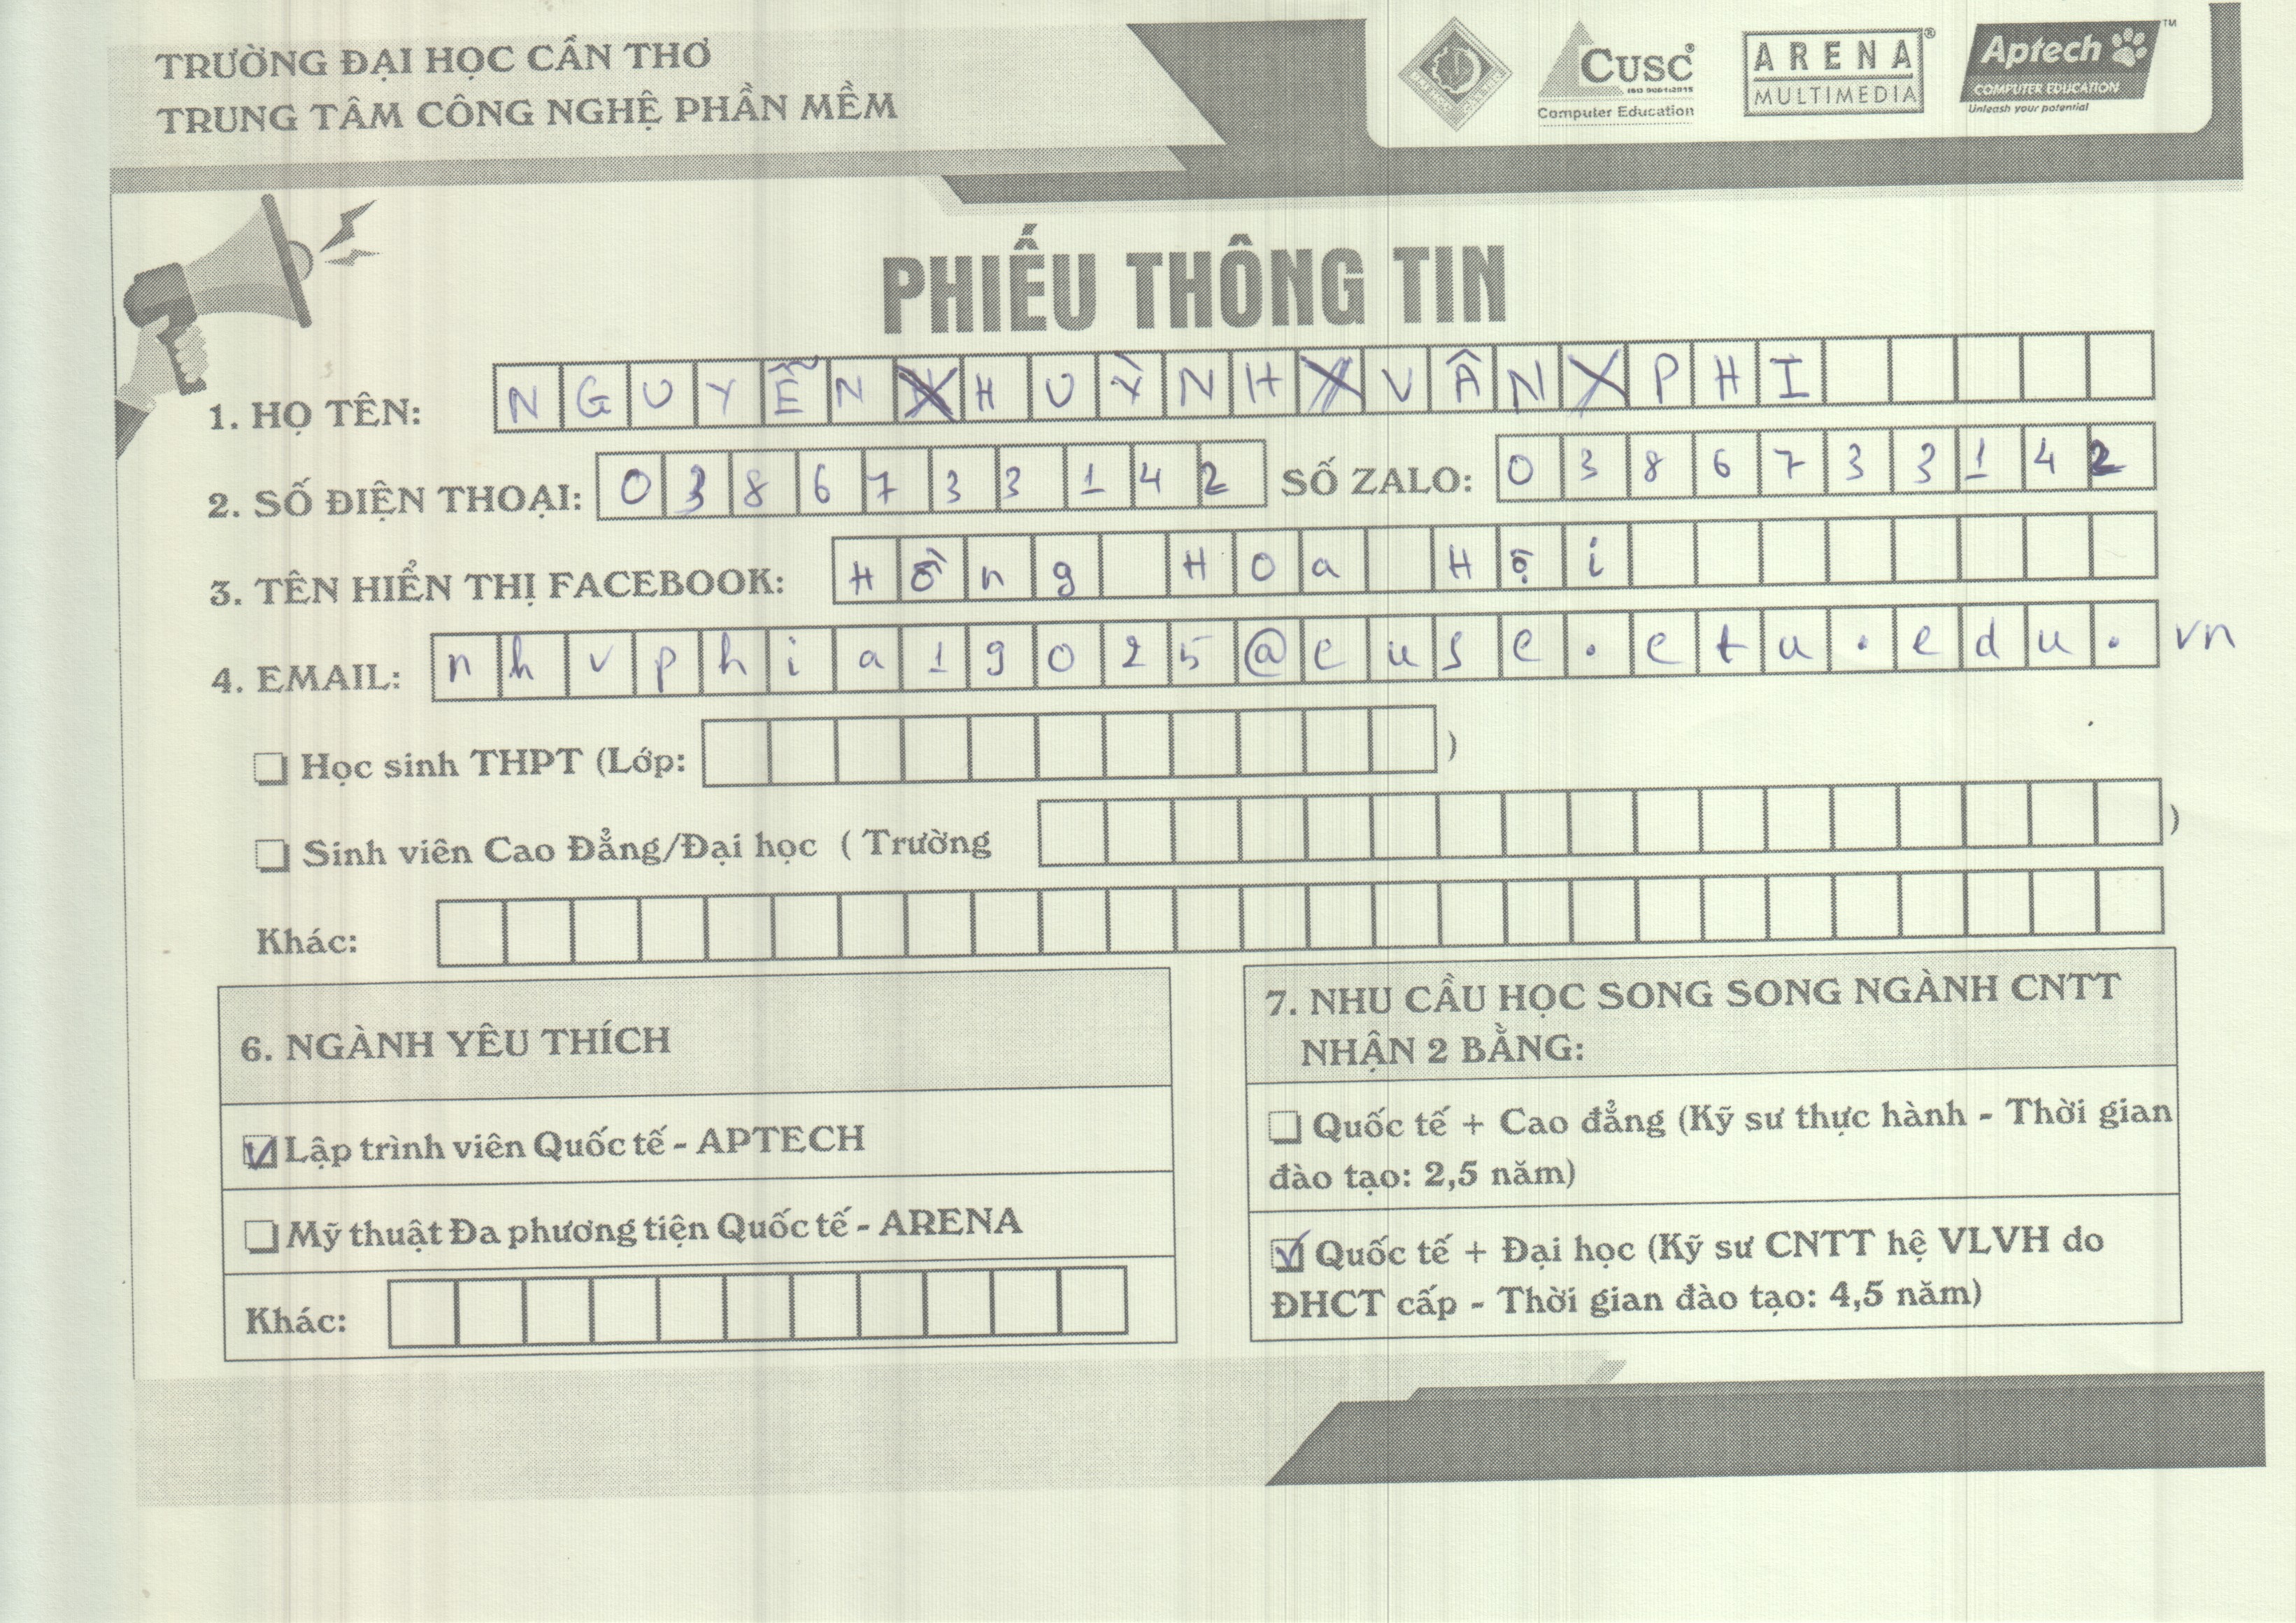 TRƯỜNG ĐẠI HỌC CẦN THƠ
TRUNG TÂM CÔNG NGHỆ PHẦN MỀM
CUSC®
ISO 9001:2015
Computer Education
ARENA®
MULTIMEDIA
Aptech™
COMPUTER EDUCATION
Unleash your potential
PHIẾU THÔNG TIN
1. HỌ TÊN: NGUYỄN HUỲNH VÂN PHI
2. SỐ ĐIỆN THOẠI: 0386733142 SỐ ZALO: 0386733142
3. TÊN HIỂN THỊ FACEBOOK: Hồng Hoa Hội
4. EMAIL: nhvphia19025@cusc.ctu.edu.vn
Học sinh THPT (Lớp: )
Sinh viên Cao Đẳng/Đại học ( Trường )
Khác:
6. NGÀNH YÊU THÍCH
Lập trình viên Quốc tế - APTECH
Mỹ thuật Đa phương tiện Quốc tế - ARENA
Khác:
7. NHU CẦU HỌC SONG SONG NGÀNH CNTT
NHẬN 2 BẰNG:
Quốc tế + Cao đẳng (Kỹ sư thực hành - Thời gian
đào tạo: 2,5 năm)
Quốc tế + Đại học (Kỹ sư CNTT hệ VLVH do
ĐHCT cấp - Thời gian đào tạo: 4,5 năm)